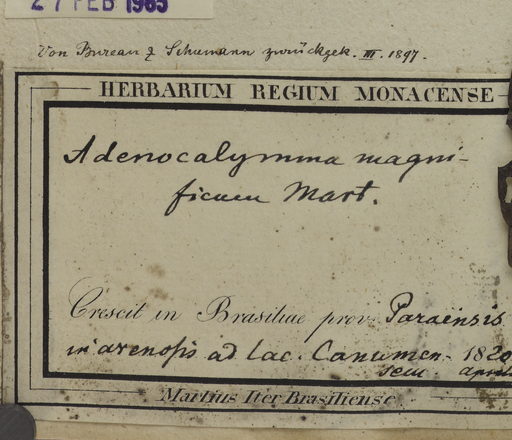 27 FEB 1965
Von Bureau & Schumann zurückgek. III. 1897.
HERBARIUM REGIUM MONACENSE
Adenocalymma magni-
ficum Mart.
Crescit in Brasiliae prov. Paraensis
in arenosis ad Lac. Canumen. 1820
April
Martius Iter Brasiliense